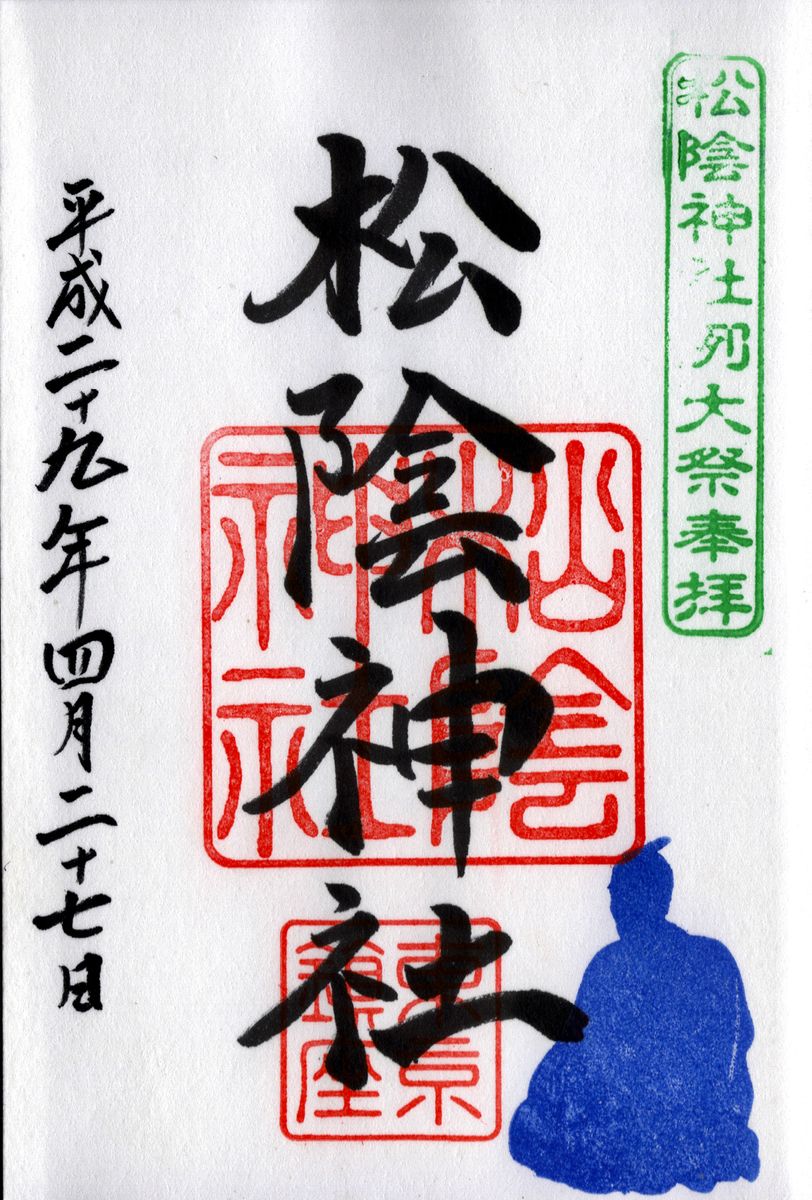 松陰神社例大祭奉拝
松陰神社
松陰神社
東京鎮座
平成二十九年四月二十七日